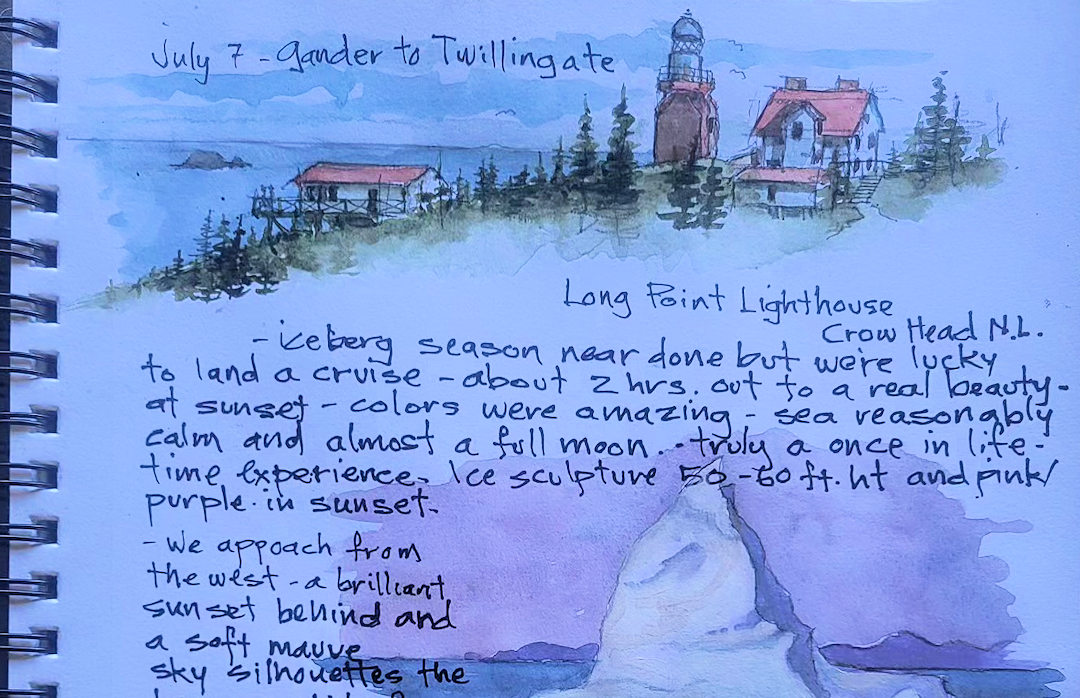 July 7 - Gander to Twillingate
Long Point Lighthouse
Crow Head N.L.
- iceberg season near done but we're lucky
to land a cruise - about 2 hrs. out to a real beauty -
at sunset - colors were amazing - sea reasonably
calm and almost a full moon. - truly a once in life-
time experience. Ice sculpture 50-60 ft. ht and pink/
purple in sunset.
- We appoach from
the west - a brilliant
sunset behind and
a soft mauve
sky silhouettes the